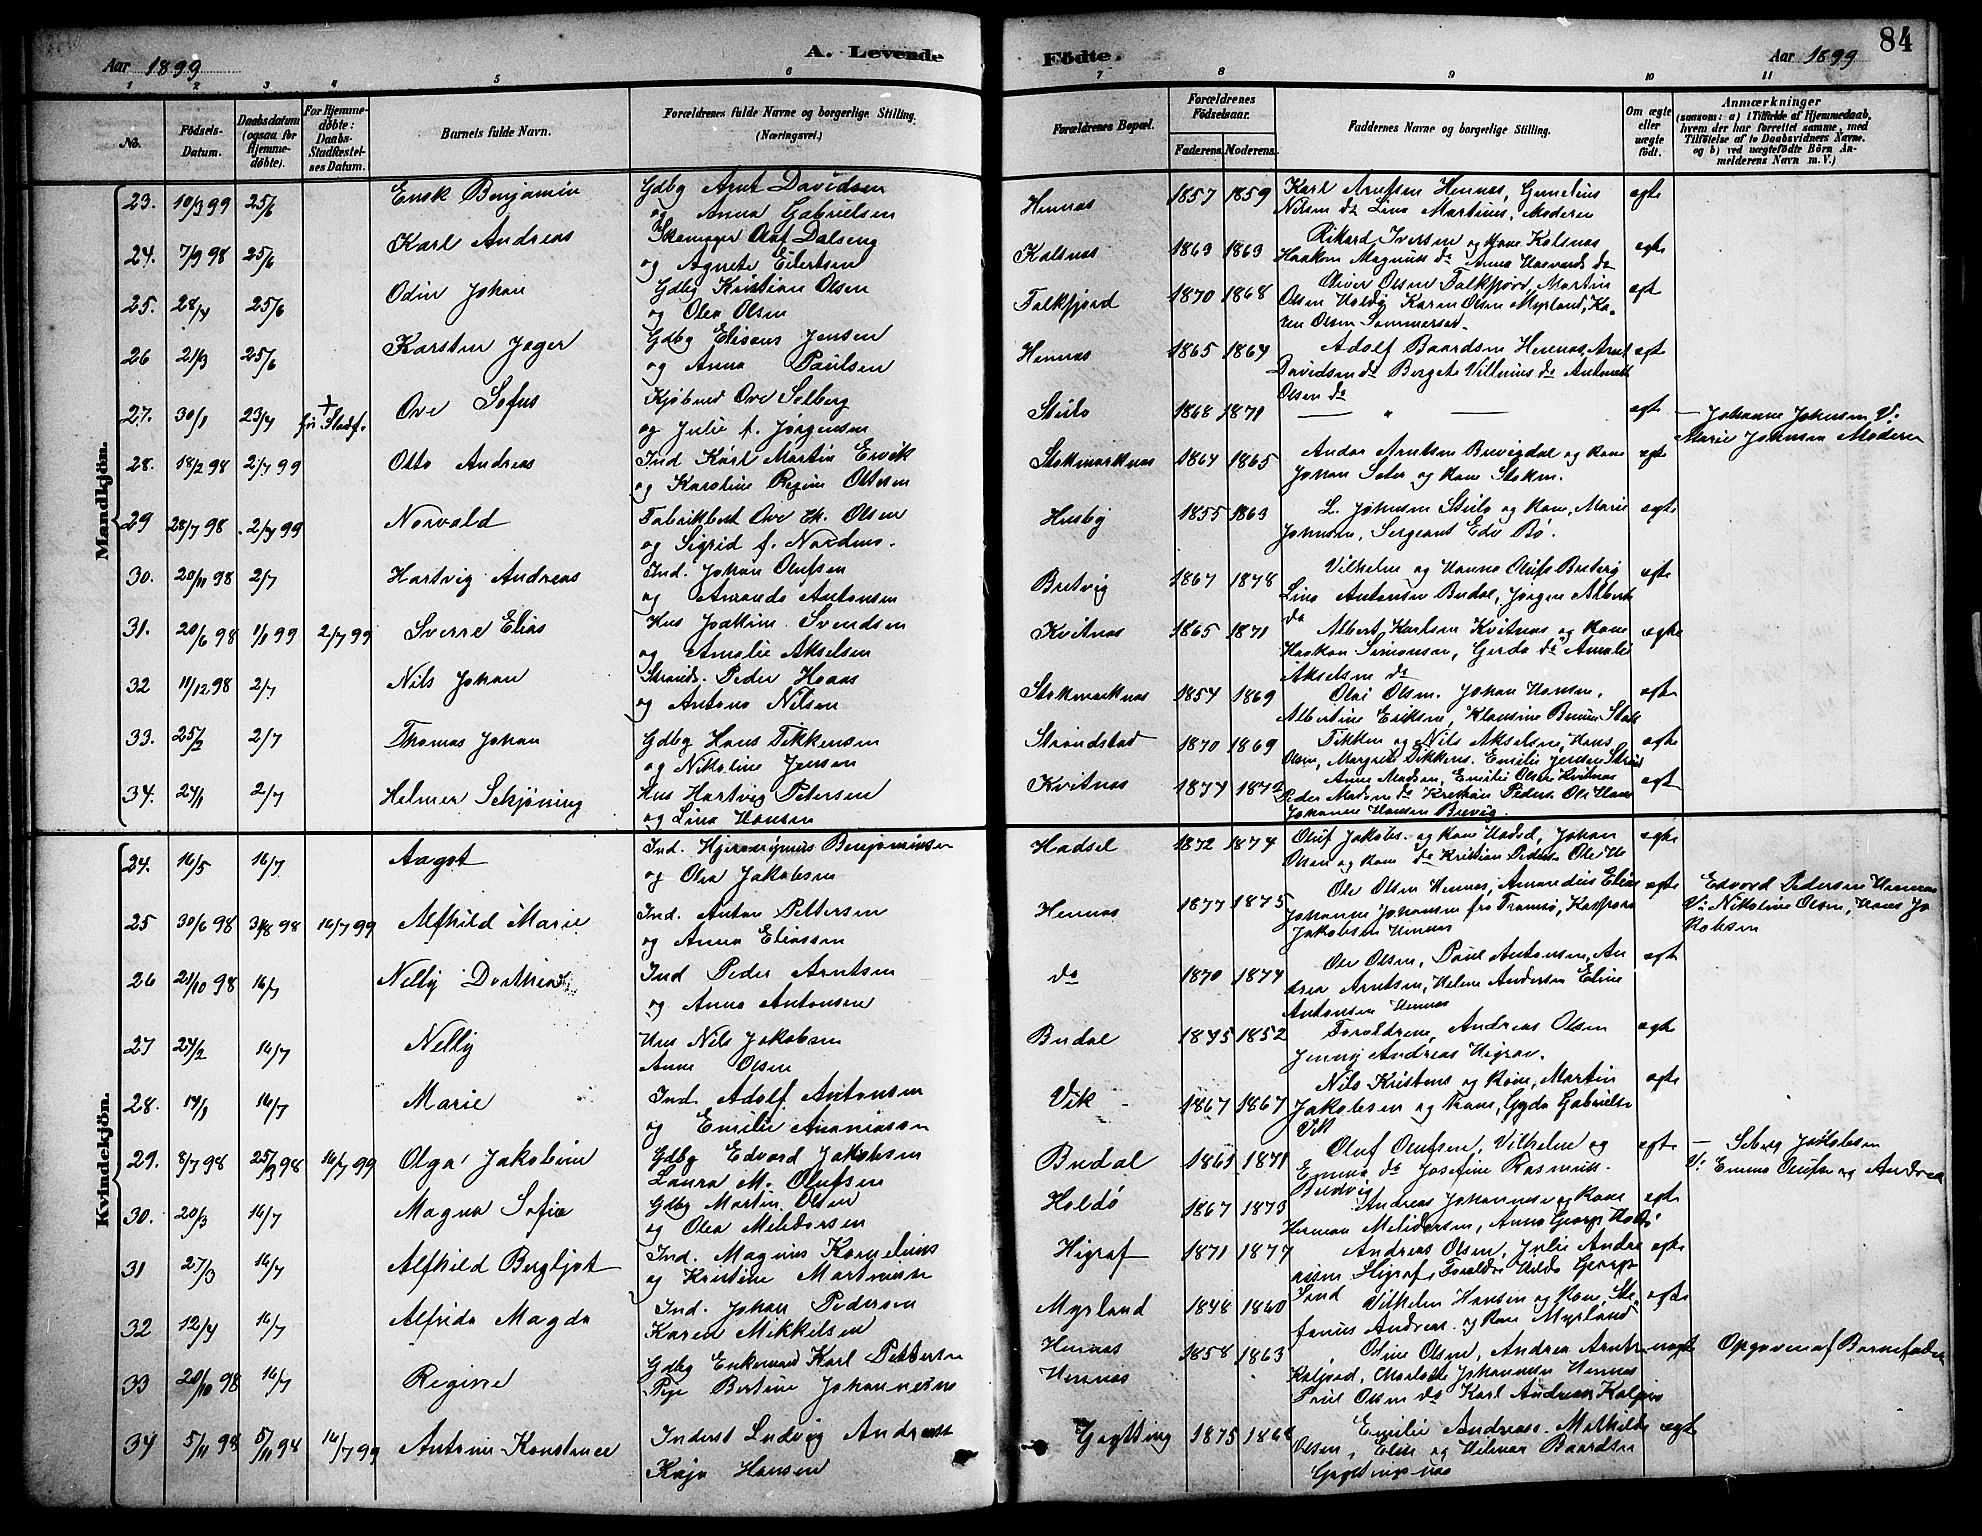 Aar 1899
A. Levende
Födte.
Aar 1899
84
1 2 3 4 5 6 7 8 9 10 11
No.
Födsels-Datum.
Daabsdatum (ogsaa for Hjemmedöbte).
For Hjemmedöbte: Daabs Stadfæstelses Datum.
Barnets fulde Navn.
Forældrenes fulde Navne og borgerlige Stilling. (Næringsvei.)
Forældrenes Bopæl.
Forældrenes Födselsaar.
Faderens. Moderens.
Faddernes Navne og borgerlige Stilling.
Om ægte eller uægte födt.
Anmærkninger
(saasom: a) i Tilfælde af Hjemmedaab, hvem der har forrettet samme, med Tilföielse af to Daabsvidners Navne, og b) ved uægtefödte Börn Anmelderens Navn m. V.)
Mandkjön.
23. 10/3 99 25/6 Enok Benjamin Gdbg Arnt Davidsen
og Anna Gabrielsen Hennes 1857 1859 Karl Arntsen Hennes, Cornelius
Nilsen do Lina Martinus, Moderen egte
24. 7/9 98 25/6 Karl Andreas Skomager Olaf Dalseng
og Agnete Eilertsen Kalsnes 1863 1863 Rikard Iversen og Kone Kalsnes
Haakon Magnus do Anna Havard do egte
25. 28/4 25/6 Odin Johan Gdbg Kristian Olsen
og Olea Olsen Falkfjord 1870 1868 Oliver Olsen Falkfjord, Martin
Olsen Holdø Karen Olsen Myrland, Karen Olsen Sommerset. egt
26 21/3 25/6 Karsten Jeger Gdbg Elisæus Jensen
og Anna Paulsen Hennes 1865 1864 Adolf Baardsen Hennes, Arnt
Davidsen do Bergete do
Olsen do egte
27. 30/1 23/4 Ove Sofus Kjøbmd Ove Selberg
og Julie f. Jørgensen Steilo 1868 1871 — " — egte — Johanne Johnsen V:
Marie Johnsen Moderen
28. 18/2 98 2/7 99 Otto Andreas Ind Karl Martin Ervik
og Karoline Regine Ottesen Stokmarknes 1864 1865 Andor Arntsen og Kone
Johan og Kone Stokm. egte
29 28/7 98 2/7 99 Norvald Ove Chr. Olsen
og Sigrid f. Husby 1855 1863 L. Johnsen Steilo og Kone, Marie
Johnsen, Sergeant Edv Bø. egte
30. 20/11 98 2/7 Hartvig Andreas Ind. Johan Olufsen
og Amanda Antonsen Bretvig 1867 1878 Vilhelm og Hanna Olufs
Lina Antonsen Budal, Jørgen Albert
do egte
31. 20/6 98 1/1 99 2/7 99 Sverre Elias Hus Joakim Svendsen
og Amalie Akselsen Kvitnes 1865 1871 Albert Karlsen Kvitnes og Kone
Haakon Simonsen, Gerda do Amalie
Akselsen do egte
32 11/12 98 2/7 Nils Johan Strands. Peder Haaas
og Antona Nilsen Stokmarknes 1854 1869 Olai Olsen. Johan Hansen,
Albertine Eriksen, Klausine Stok egte
33. 25/2 2/7 Thomas Johan Gdbg Hans Tikkensen
og Nikoline Jensen Strandstad 1870 1869 Tikken og Nils Akselsen, Hans
Olsen, Margrete Dikkens. Emilie Jensen Strand egte
34. 24/1 2/7 Helmer Sekjøning Hus Hartvig Petersen
og Lina Hansen Kvitnes 1874 1872 Anne Madsen, Emilie Olsen Kvitnes
Peder Madsen do Kristian Peders. Ole Hans
Johanne Hansen egt
Kvindekjön.
24. 16/5 16/7 Aagot Ind. Hjeronymus Benjaminsen
og Olea Jakobsen Hadsel 1872 1874 Oluf Jakobs. og Kone Hadsel, Johan
Olsen og Kone do Kristian Peders. egte
25 30/6 98 31/8 98 16/7 99 Alfhild Marie Ind. Anton Pettersen
og Anna Eliassen Hennes 1877 1875 Ole Olsen Hennes, Amandius Elias
Johanne Johansen fra Tromsø,
Jakobsen Hennes egte Edvard Pedersen Hennes
V: Nikoline Olsen, Hans Jakobsen
26 21/10 98 16/7 Nelly Dorthea Ind Peder Arntsen
og Anna Antonsen do 1870 1874 Ole Olsen, Paul Antonsen, Andrea Arntsen, Helene Andersen Eline
Antonsen Hennes egt
27 24/2 16/7 Nelly Hus Nils Jakobsen
Anne Olsen Budal 1845 1852 Foreldrene, Andreas Olsen
Jenny Andreas Higrav. egte
28. 14/1 16/7 Marie Ind. Adolf Antonsen
og Emilie Ananiassen Vik 1867 1867 Nils Kristens og Kone, Martin
Jakobsen og Kone, Gyda Gabriels
Vik egte
29. 8/7 98 25/9 98 16/7 99 Olga Jakobine Gdbg Edvard Jakobsen
Laura M. Olufsen Budal 1865 1871 Oluf Olufsen, Vilhelm og
Emma do Josefine Rasmus. egt — Seberg Jakobsen
V: Emma Olufs og Andrea
30. 20/3 16/7 Magna Sofie Gdbg Martin Olsen
og Olea Meldorsen Holdø 1867 1873 Andreas Johannesen og Kone
Herman Melidersen, Anna Georgs Holdø egte
31 27/3 16/7 Alfhild Bergljot Ind. Magnus Kornelius
og Kristine Higraf 1871 1877 Andreas Olsen, Julie Andreassen Higraf, Foreldre Hilda Georgs
Sand egte
32 12/4 16/7 Alfrida Magda Ind. Johan Pedersen
Karen Mikkelsen Myrland 1848 1860 Vilhelm Hansen og Kone,
Andreas. og Kone Myrland egte
33 20/10 98 16/7 Regine Gdbg Enkemand Karl Pettersen
Pige Bertine Johannesen Hennes
Hennes 1858 1863 Oline Olsen, Andrea Arnts
Johannesen Hennes
Paul Olsen do Karl Andreas uegte Opgaven af Barnefader
34 5/11 98 5/11 98 16/7 99 Antonie Konstance Inderst Ludvig Andreas
Kaja Hansen 1875 1868 Emilie Andreas. Mathilde
Olsen, Elin og Hilmar Baardsen egte